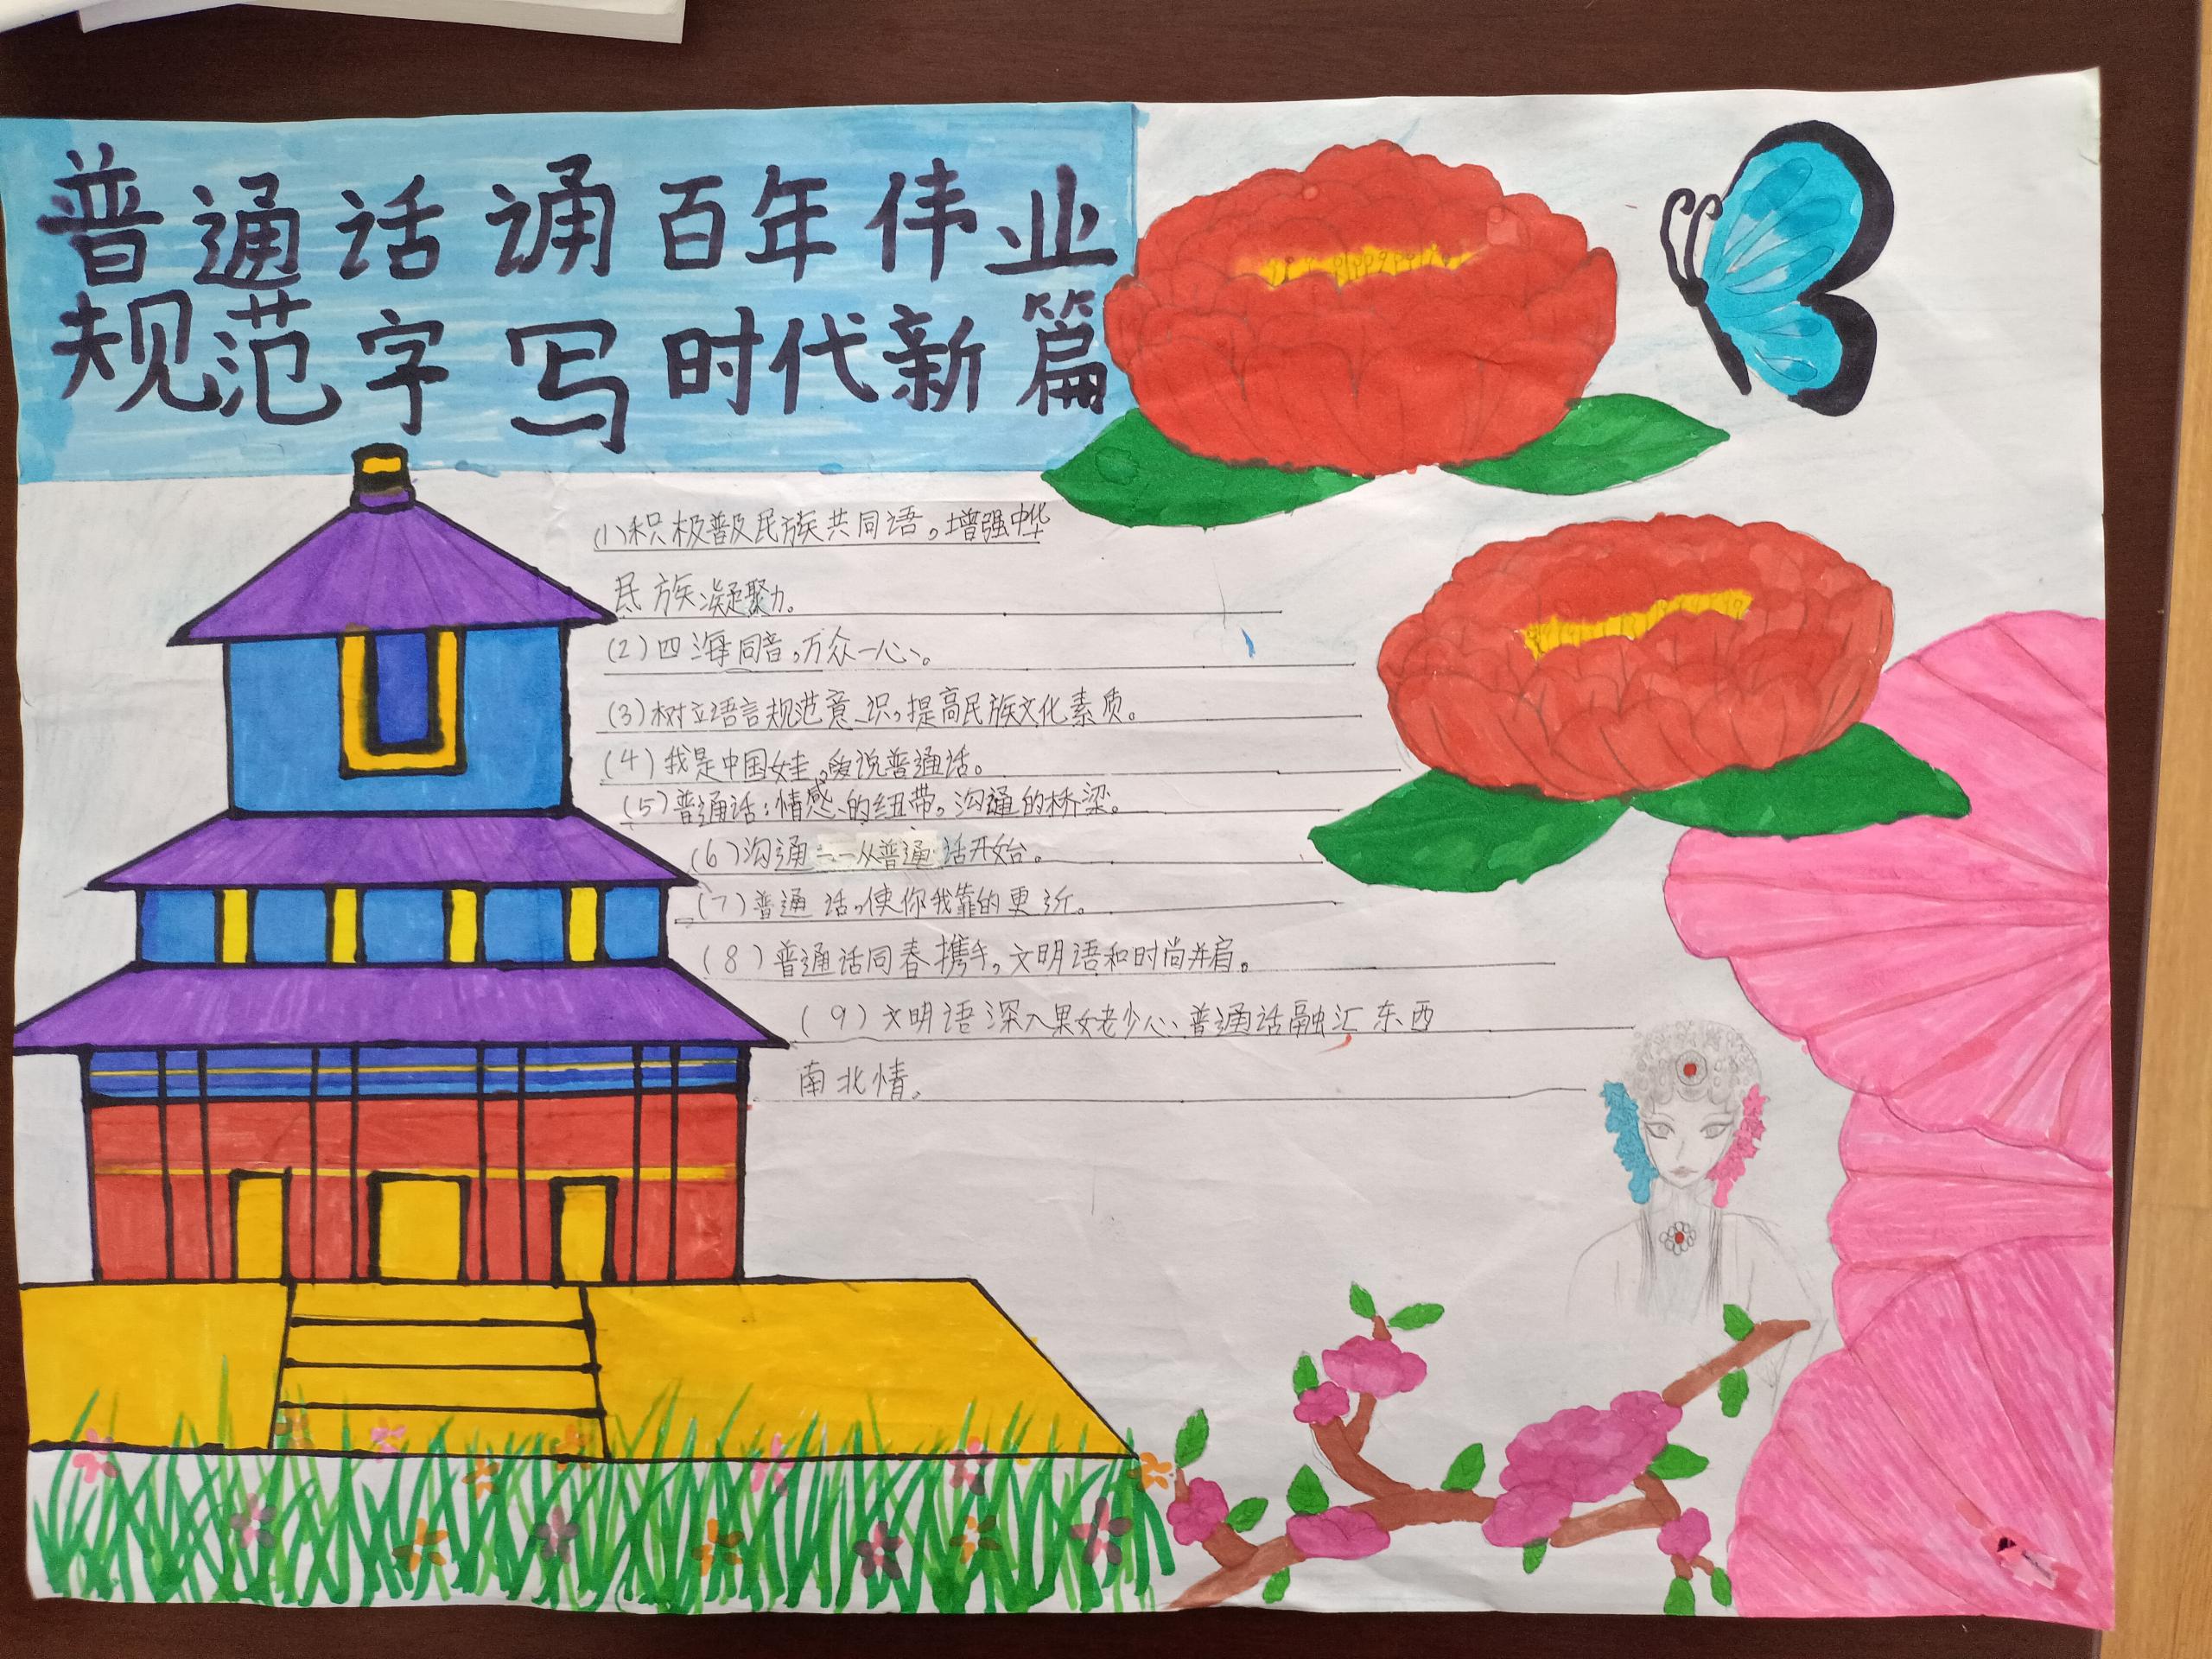 普通话诵百年伟业
规范字写时代新篇
(1)积极普及民族共同语。增强中华
民族凝聚力。
(2)四海同音,万众一心。
(3)树立语言规范意识,提高民族文化素质。
(4)我是中国娃,爱说普通话。
(5)普通话:情感的纽带。沟通的桥梁。
(6)沟通——从普通话开始。
(7)普通话,使你我靠的更近。
(8)普通话同春携手,文明语和时尚并肩。
(9)文明语深入男女老少心、普通话融汇东西
南北情。